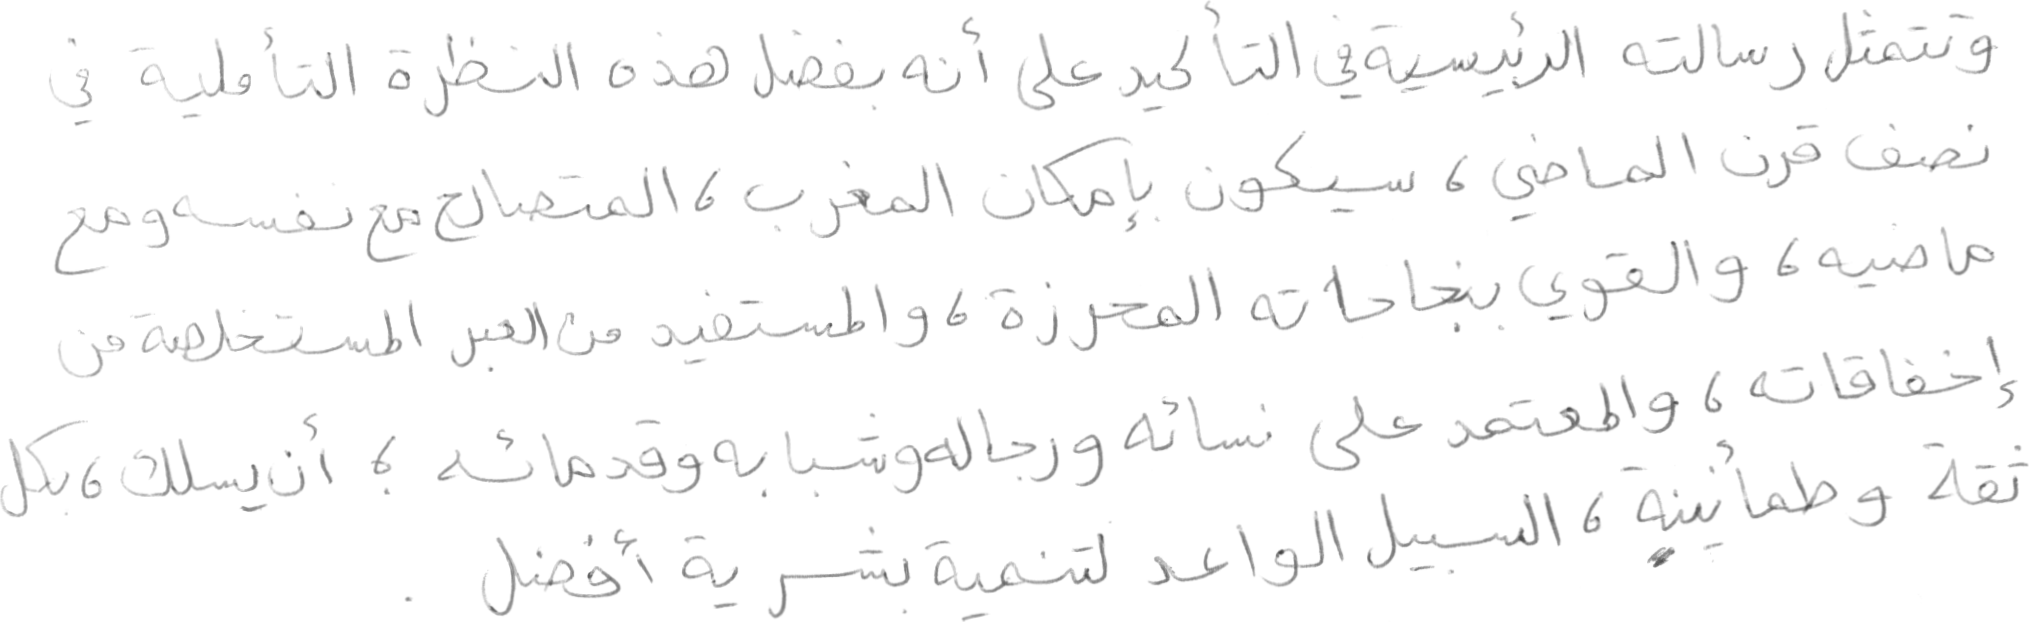 وتتمثل رسالته الرئيسية في التأكيد على أنه بفضل هذه النظرة التأملية في
نصف قرن الماضي، سيكون بإمكان المغرب، المتصالح مع نفسه ومع
ماضيه، والقوي بنجاحاته المحرزة، والمستفيد من العبر المستخلصة من
إخفاقاته، والمعتمد على نسائه ورجاله وشبابه وقدمائه؛ أن يسلك، بكل
ثقة وطمأنينة، السبيل الواعد لتنمية بشرية أفضل.